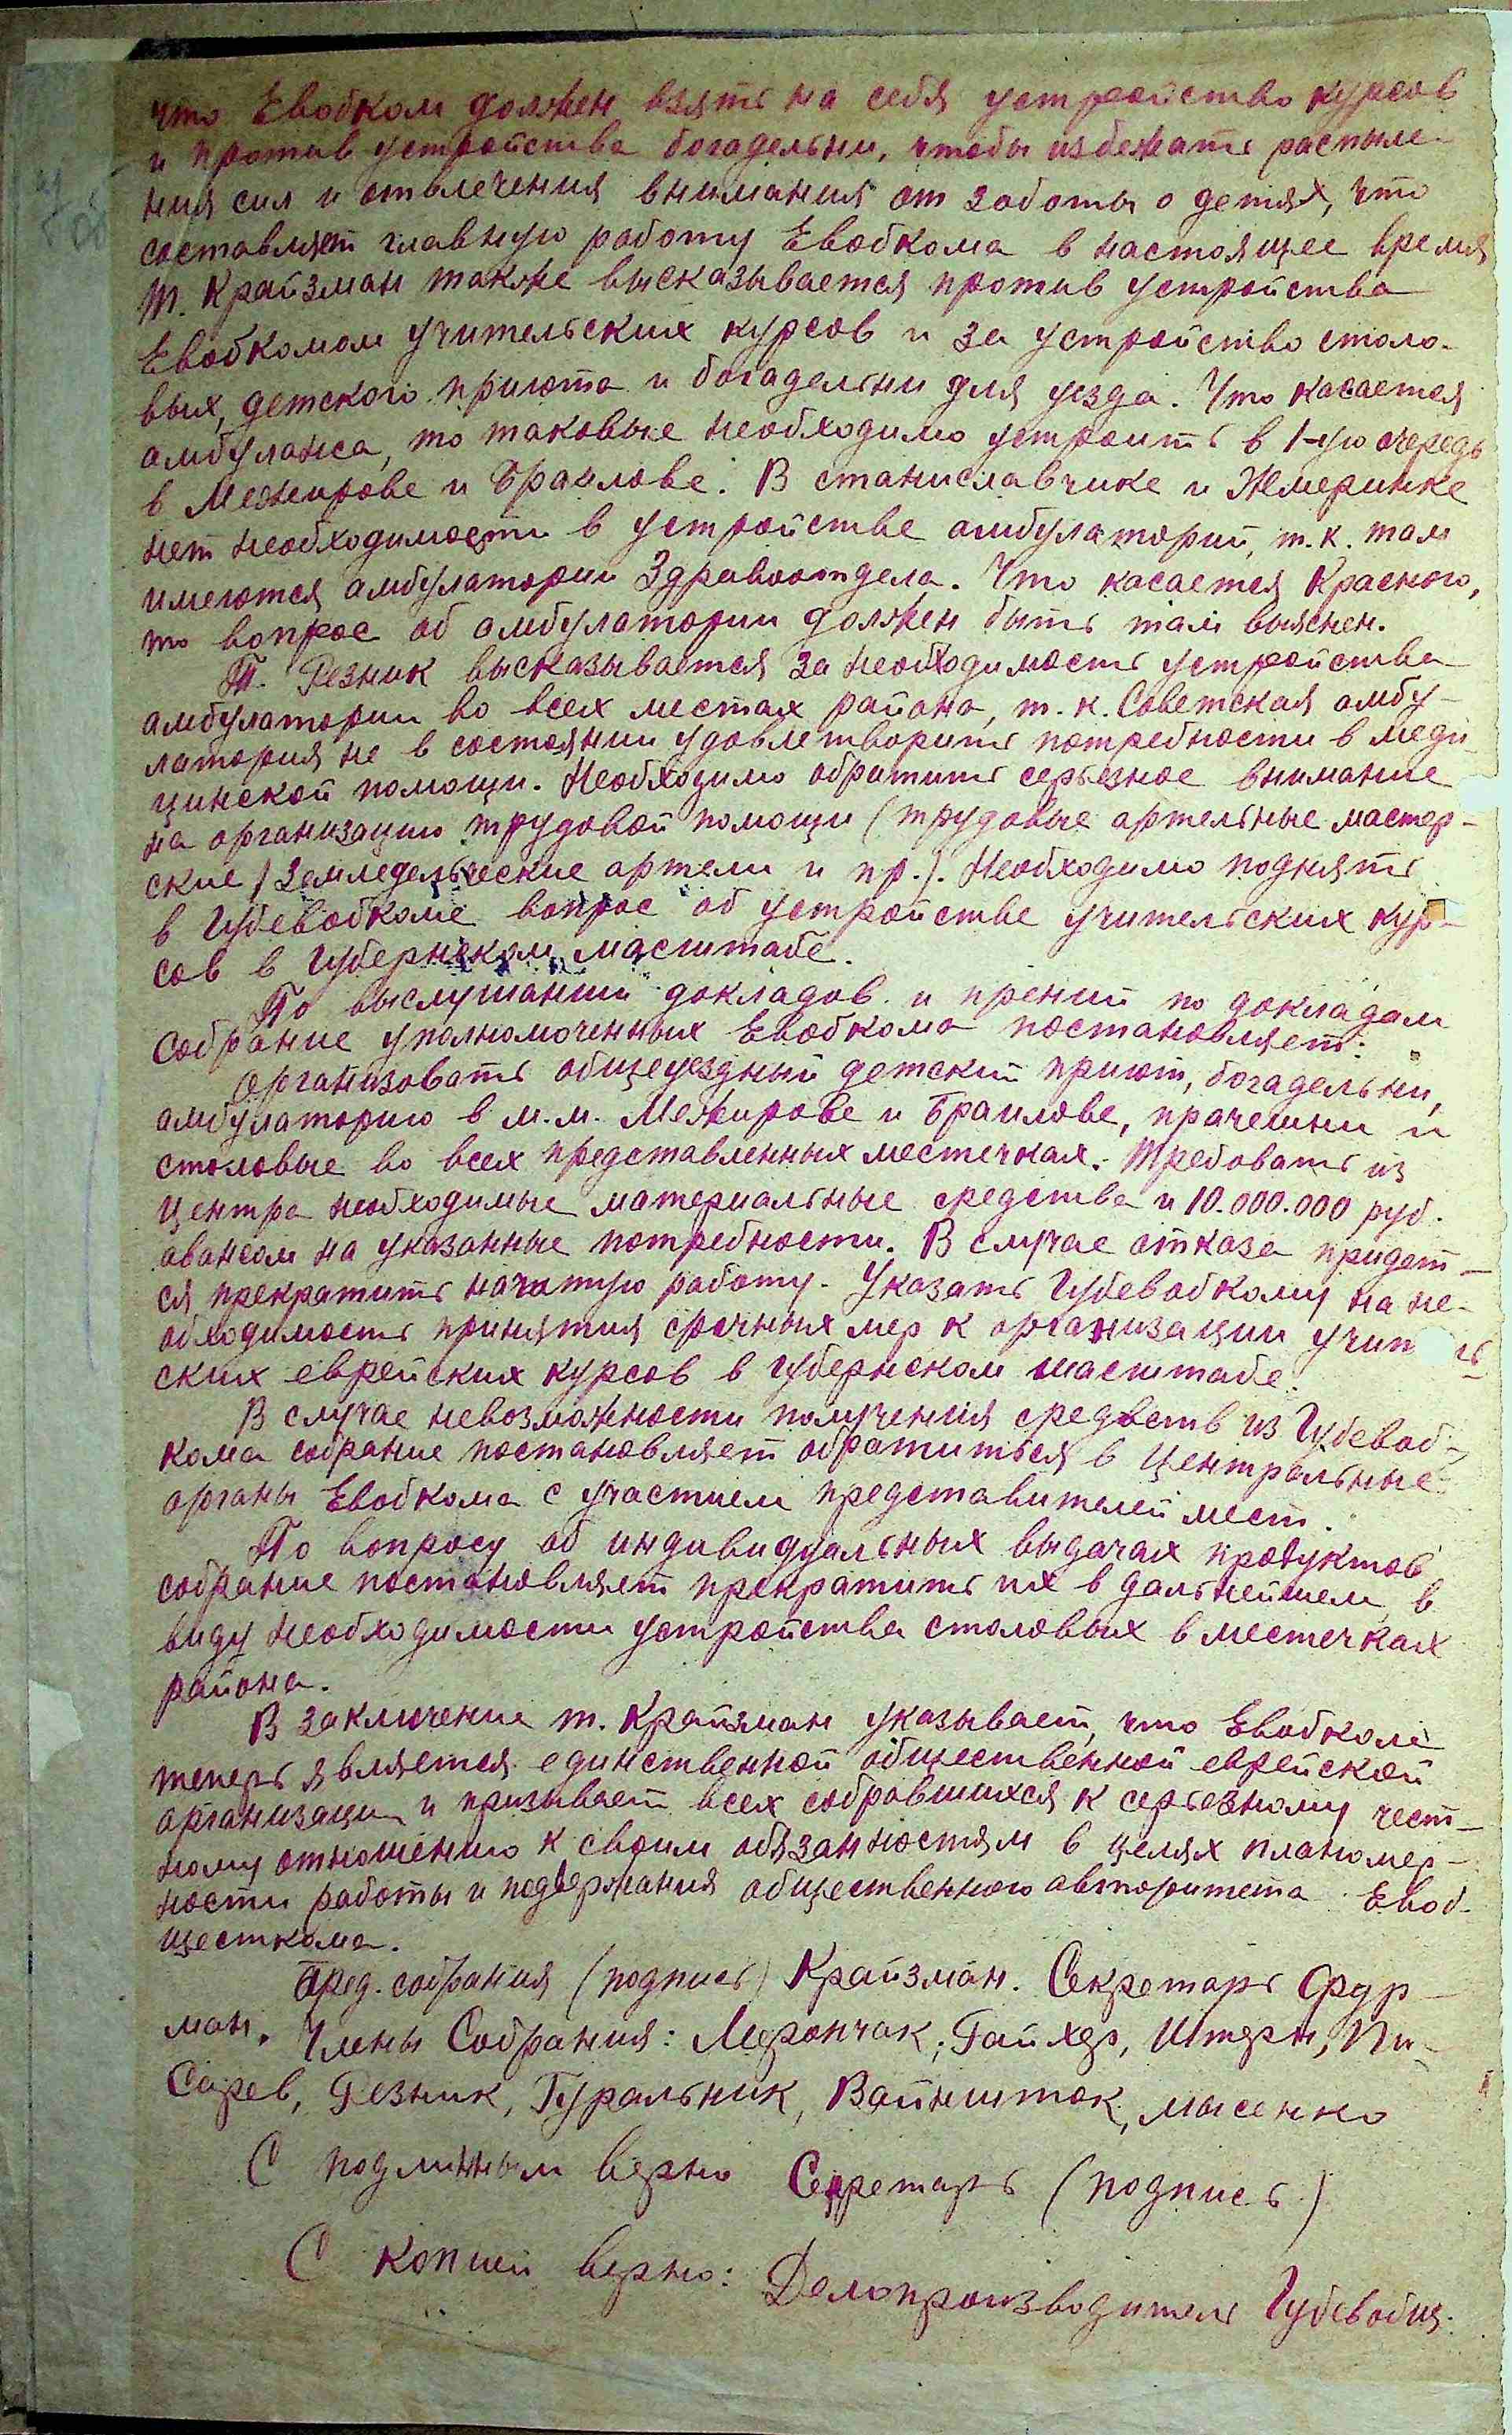 что Евобком должен взять на себя устройство курсов
и против устройства богадельни, чтобы избежать распыле-
ния сил и отвлечения внимания от заботы о детях, что
составляет главную работу Евобкома в настоящее время
Т. Крайзман также высказывается против устройства
Евобкомом учительских курсов и за устройство столо-
вых, детского приюта и богадельни для уезда. Что касается
амбуланса, то таковые необходимо устроить в 1-ую очередь
в Межирове и Браилове. В Станиславчике и Жмеринке
нет необходимости в устройстве амбулаторий, т.к. там
имеются амбулатории Здравоотдела. Что касается Красного,
то вопрос об амбулатории должен быть там выяснен.
Т. Резник высказывается за необходимость устройства
амбулатории во всех местах района, т.к. Советская амбу-
латория не в состоянии удовлетворить потребности в меди-
цинской помощи. Необходимо обратить серьезное внимание
на организацию трудовой помощи (трудовые артельные мастер-
ские) Земледельческие артели и пр.). Необходимо поднять
в Губевобкоме вопрос об устройстве учительских кур-
сов в Губернском масштабе.
По выслушании докладов и прений по докладам
Собрание уполномоченных Евобкома постановляет:
Организовать общеуездный детский приют, богадельни,
амбулаторию в м.м. Межирове и Браилове, прачешни и
столовые во всех представленных местечках. Требовать из
Центра необходимые материальные средства и 10.000.000 руб.
авансом на указанные потребности. В случае отказа придет-
ся прекратить начатую работу. Указать Губевобкому на не-
обходимость принятия срочных мер к организации учит ль-
ских еврейских курсов в губернском масштабе.
В случае невозможности получения средств из Губевоб-
кома собрание постановляет обратиться в Центральные
органы Евобкома с участием представителей мест.
По вопросу об индивидуальных выдачах продуктов
собрание постановляет прекратить их в дальнейшем в
виду необходимости устройства столовых в местечках
района.
В заключение т. Крайзман указывает, что Евобком
теперь является единственной общественной еврейской
организации и призывает всех собравшихся к серьезному чест-
ному отношению к своим обязанностям в целях планомер-
ности работы и подвержания общественного авторитета Евоб-
щесткома.
Пред. собрания (подпись) Крайзман. Секретарь Фур-
ман. Члены Собрания: Мерончак, Гайхер, Штерн, Пи-
сарев, Резник, Гуральник, Вайншток, Мысенко
С подлинным верно Секретарь (подпись)
С копией верно: Делопроизводитель Губевобщ.